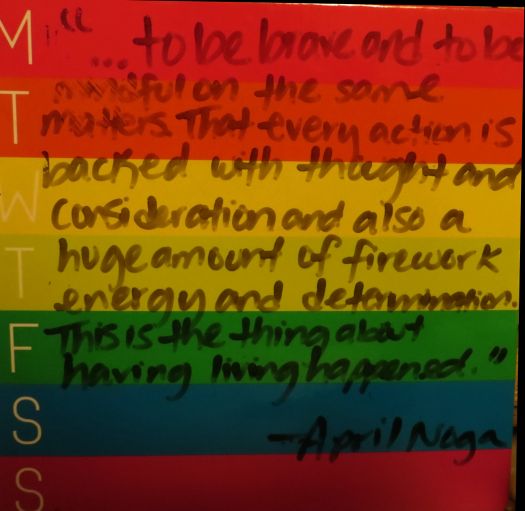 M "...to be brave and to be
mindful on the same
T matters. That every action is
backed with thought and
W consideration and also a
T huge amount of firework
energy and determination.
F This is the thing about
having living happened."
S -April Noga
S